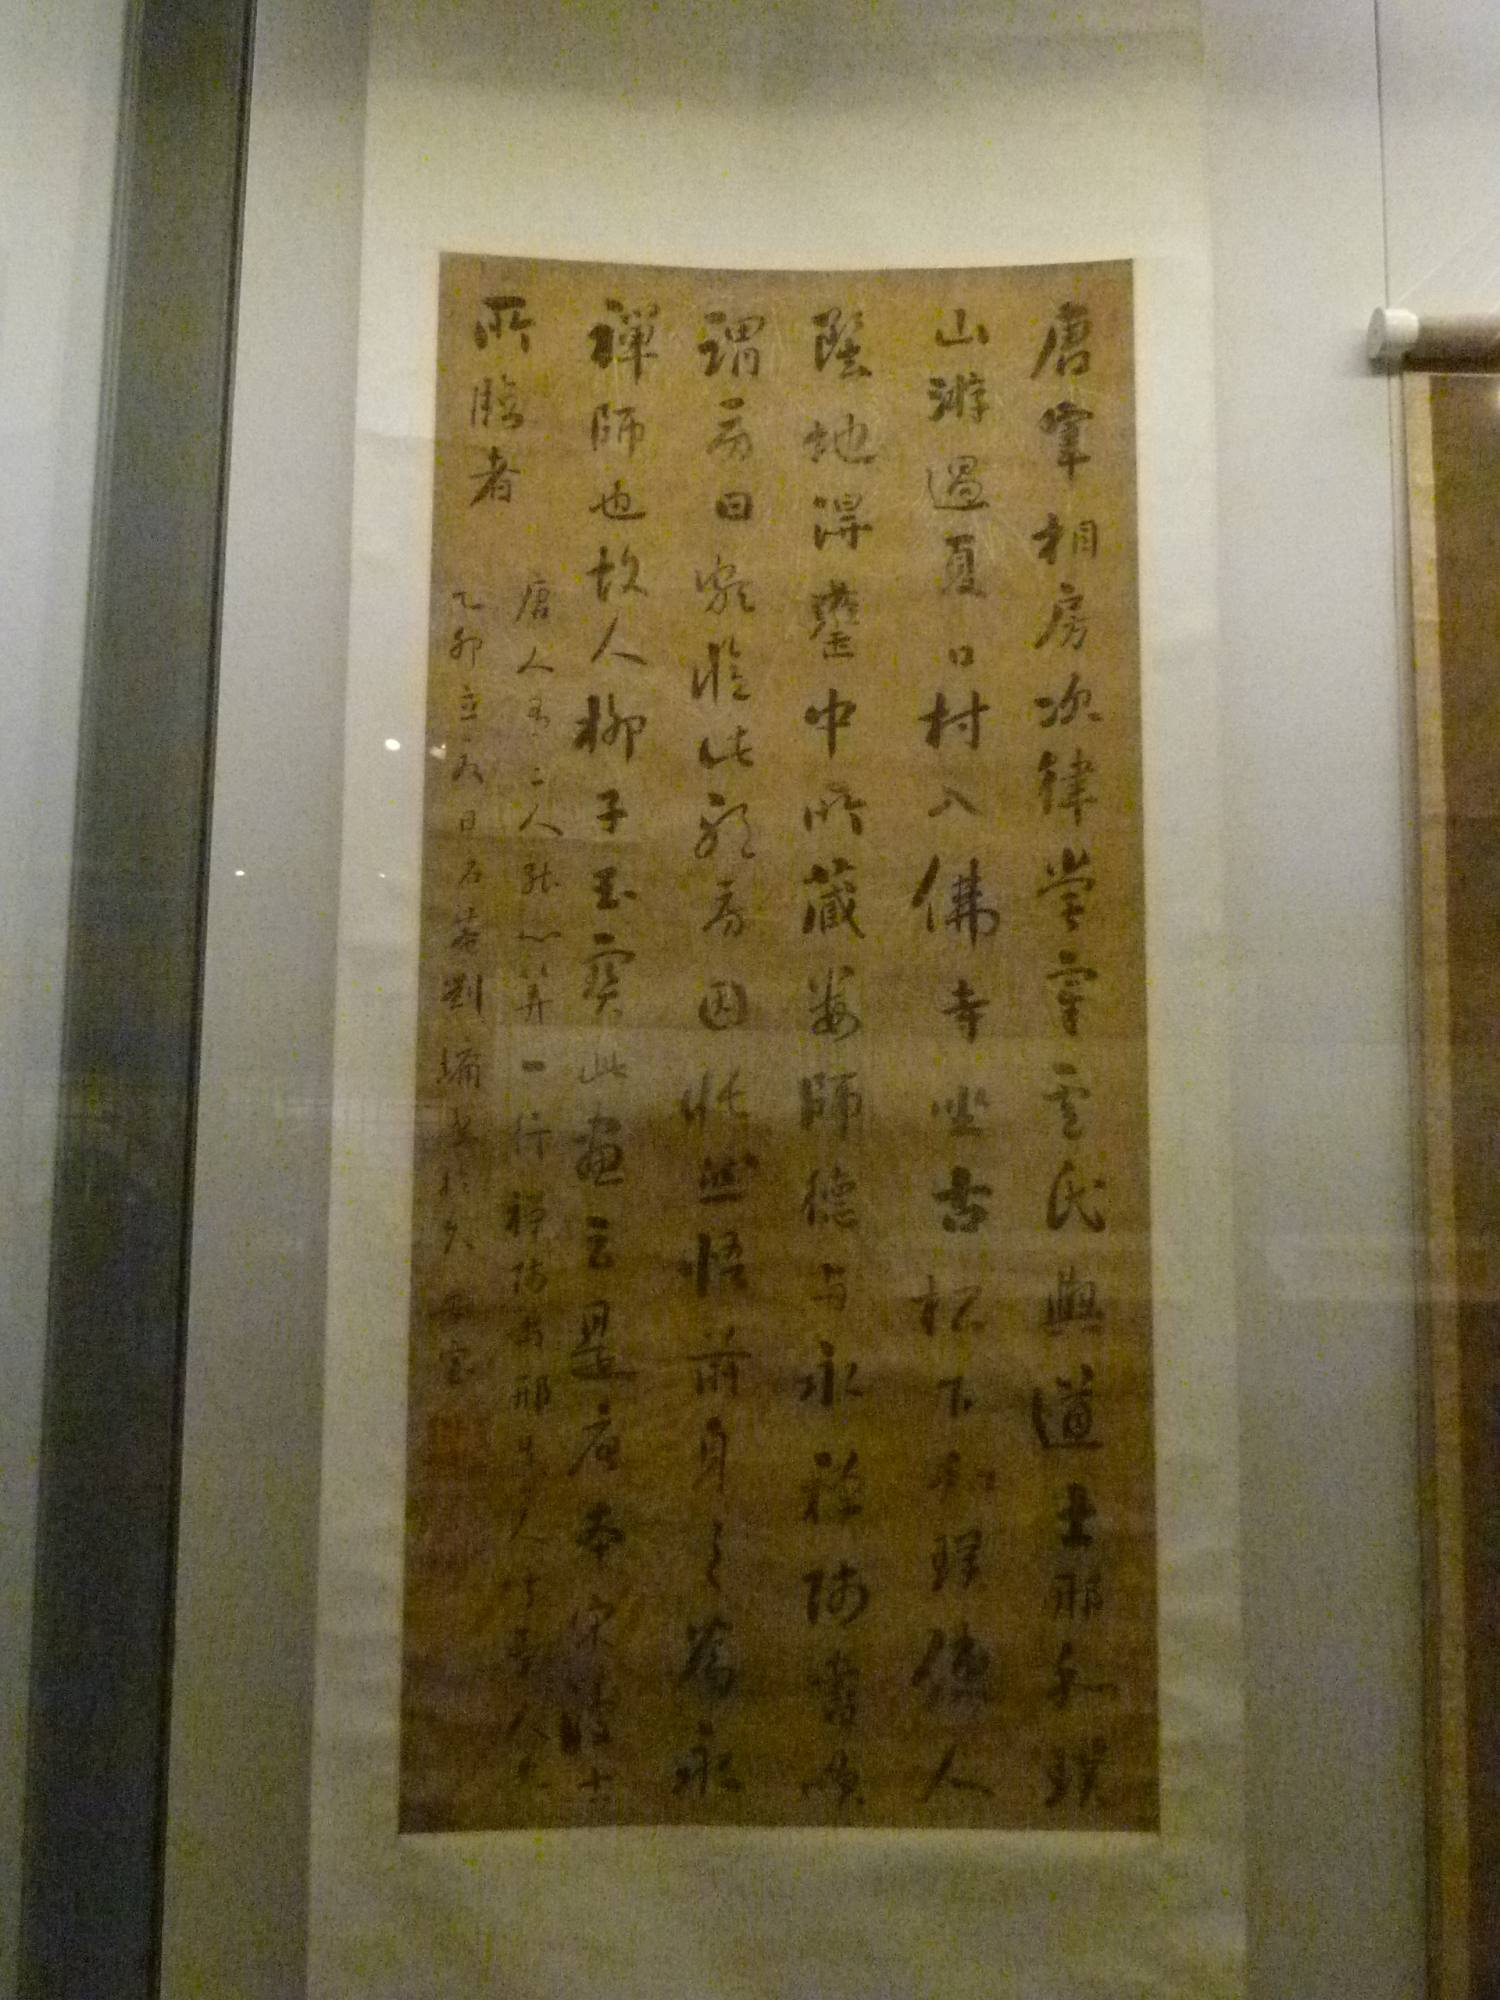 唐宰相房次律嘗宰盧氏與道士邢和璞
山游過夏口村入佛寺坐古松下和璞使人
鑿地得甕中所藏婁師德与永禪師書笑
謂房曰省此耶房因悵然悟前身之為永
禪師也故人柳子玉寶此畫云是唐本宋復古
所臨者
唐人有二人能心算一行禪師與邢
乙卯立夏日石菴劉墉書於